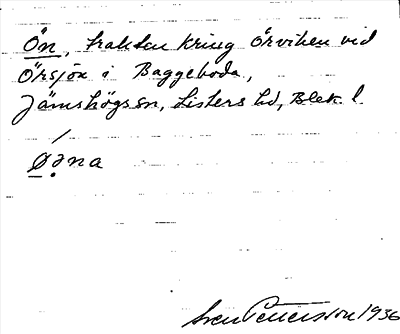 Ön, trakten kring Örviken vid
Örsjön i Baggeboda,
Jämshögs sn, Listers hd, Blek. l.
Øəna
Sven Pettersson 1936